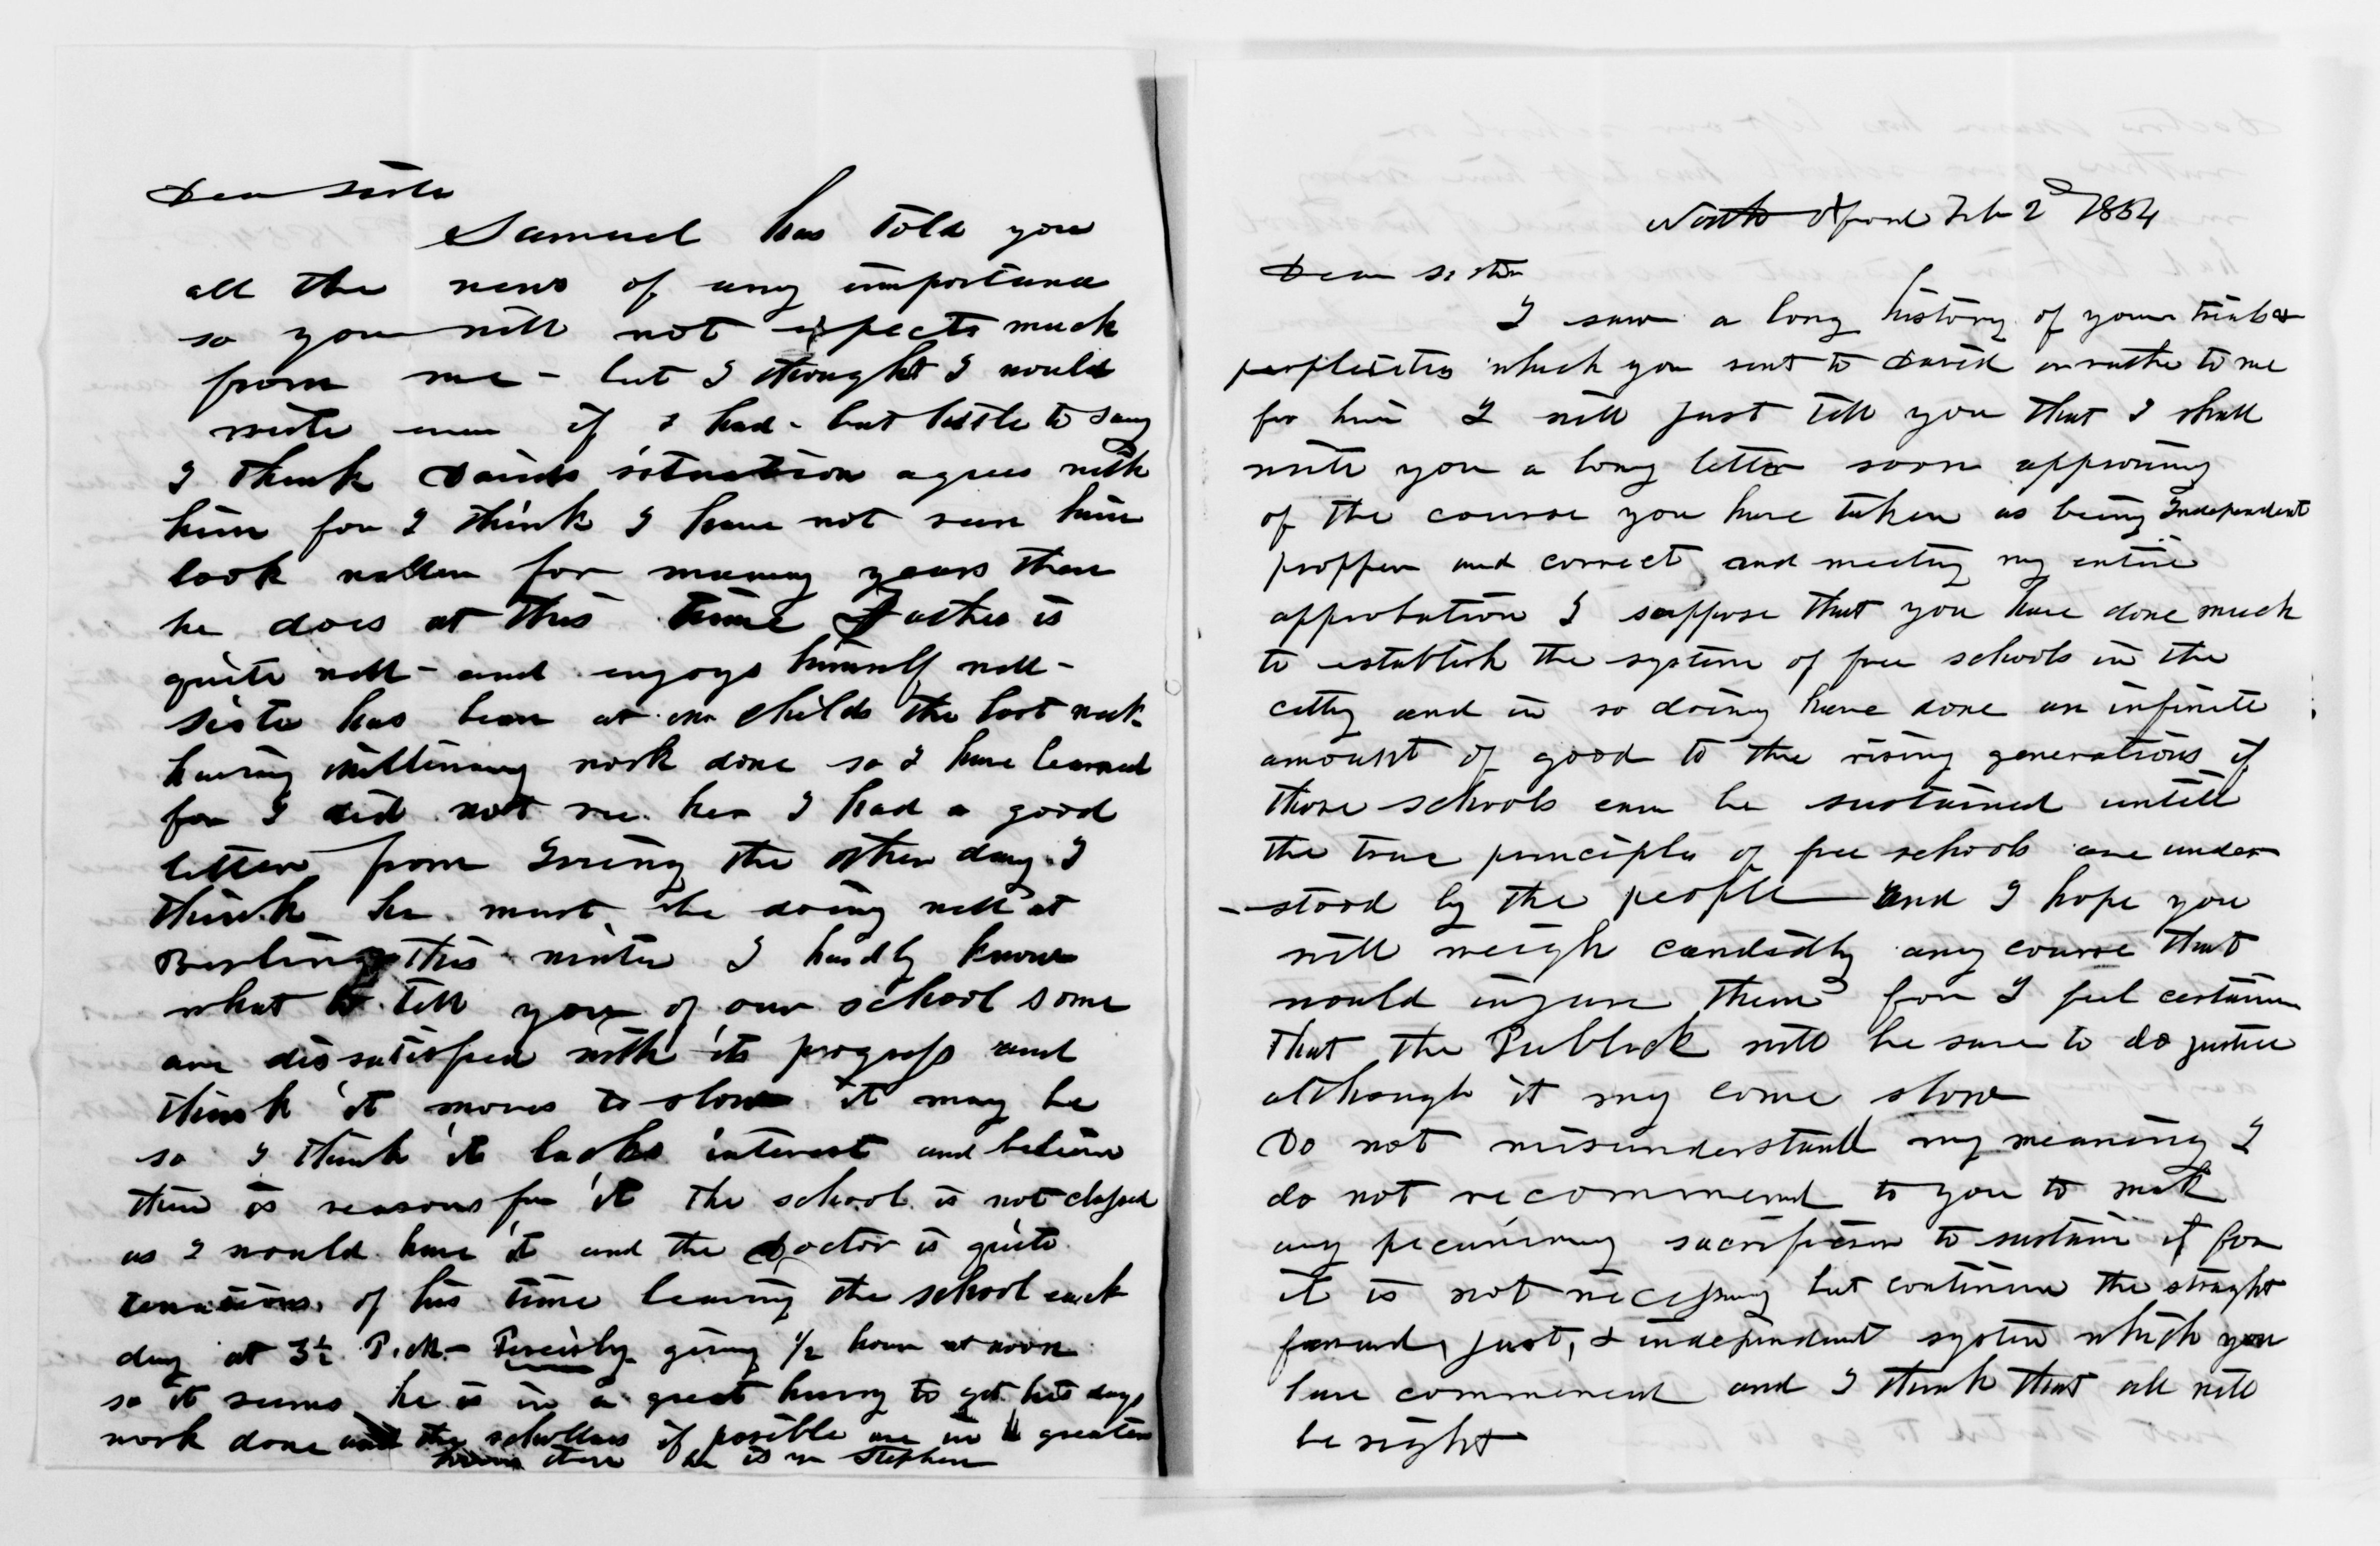 Dear Sister
Samuel has told you
all the news of any importance
so you will not expects much
from me - but I thought I would
write even if I had - but little to say
I think Davids situation agrees with
him for I think I have not seen him
look better for many years than
he does at this time Father is
quite well - and enjoys himself well -
Sister has been at Childs the last week
having millinary work done so I have learned
for I did not see her I had a good
letter from Irving the other day. I
think he must be doing well at
this winter I hardly know
what to tell you of our school some
are dissatisfied with its progress and
think it moves to slow it may be
so I think it lacks interest and believe
there is reasons for it the school is not classed
as I would have it and the Doctor is quite
tenacious of his time leaving the school each
day at 3½ P.M. - Precisly giving ½ hour at noon
so it seems he is in a great hurry to get his days
work done and the schollars if posible are in greater
then he is in Stephen
North Oxford Feb 2d 1854
Dear Sister
I saw a long history of your trials &
perplexities which you sent to David or rather to me
for him I will just tell you that I shall
write you a long letter soon approving
of the course you have taken as being Independent
propper and correct and meeting my entire
approbation I suppose that you have done much
to establish the system of free schools in the
citty and in so doing have done an infinite
amount of good to the rising generations if
those schools can be sustained untill
the true principles of free schools are under
-stood by the people and I hope you
will weigh candidly any course that
would injure them for I feel certain
that the Publick will be sure to do justice
although it my come slow
Do not misunderstand my meaning I
do not recommend to you to make
any pecuniary sacrifices to sustain it for
it is not necessary but continue the straght
forward, just, & independent system which you
have commenced and I think that all will
be right